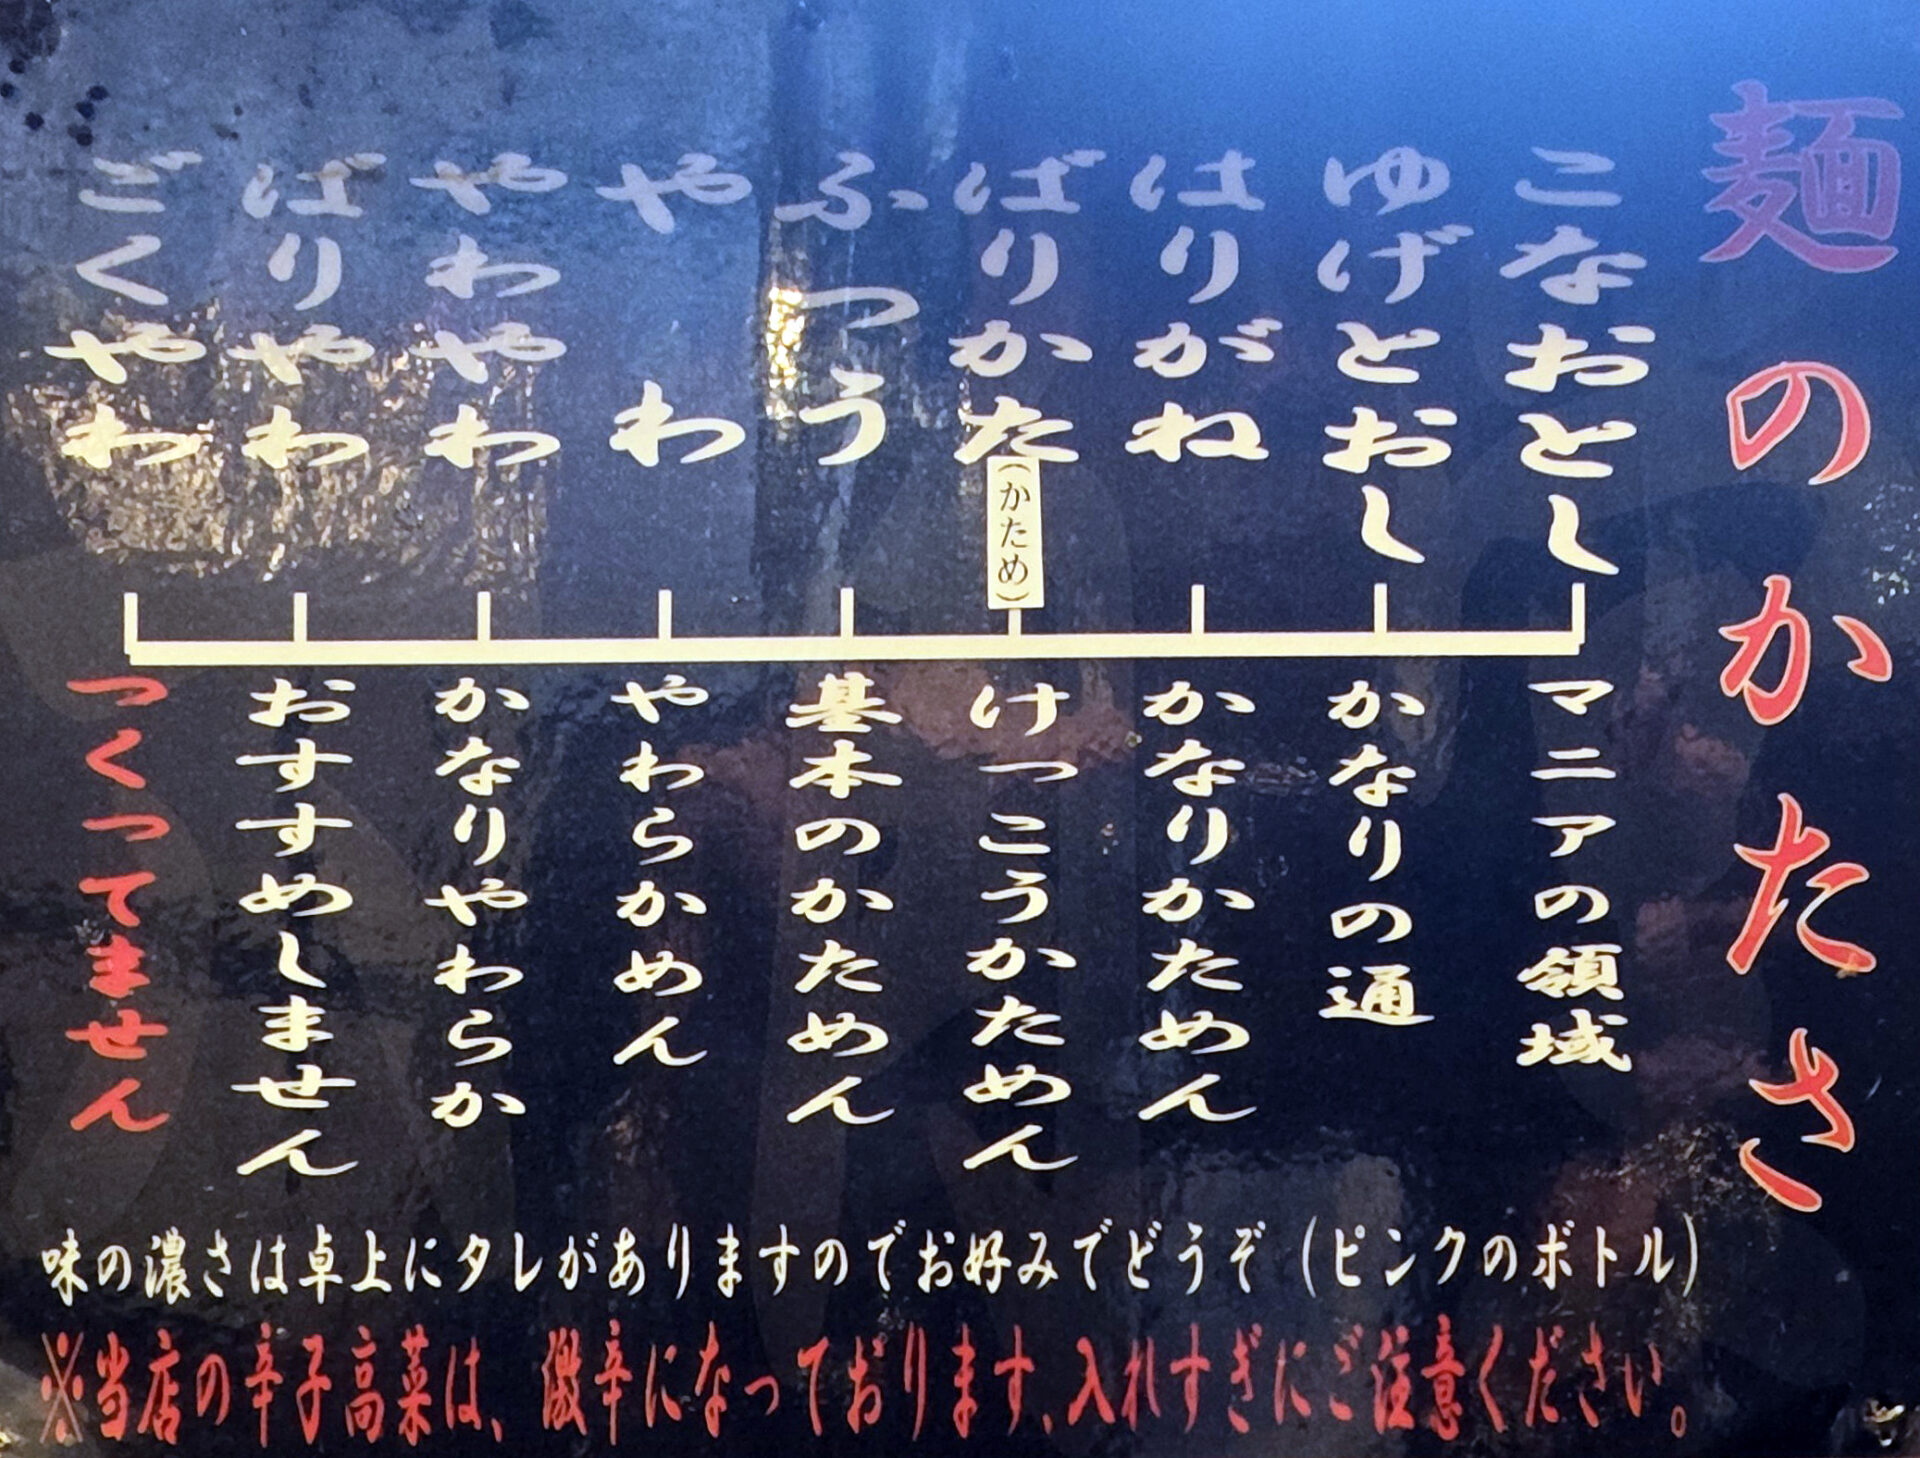 麺のかたさ
こなおとし
マニアの領域
ゆげとおし
かなりの通
はりがね
かなりかためん
ばりかた
(かため)
けっこうかためん
ふつう
基本のかためん
やわ
やわらかめん
やわやわ
かなりやわらか
ばりやわ
おすすめしません
ごくやわ
つくってません
味の濃さは卓上にタレがありますのでお好みでどうぞ（ピンクのボトル）
※当店の辛子高菜は、激辛になっております、入れすぎにご注意ください。